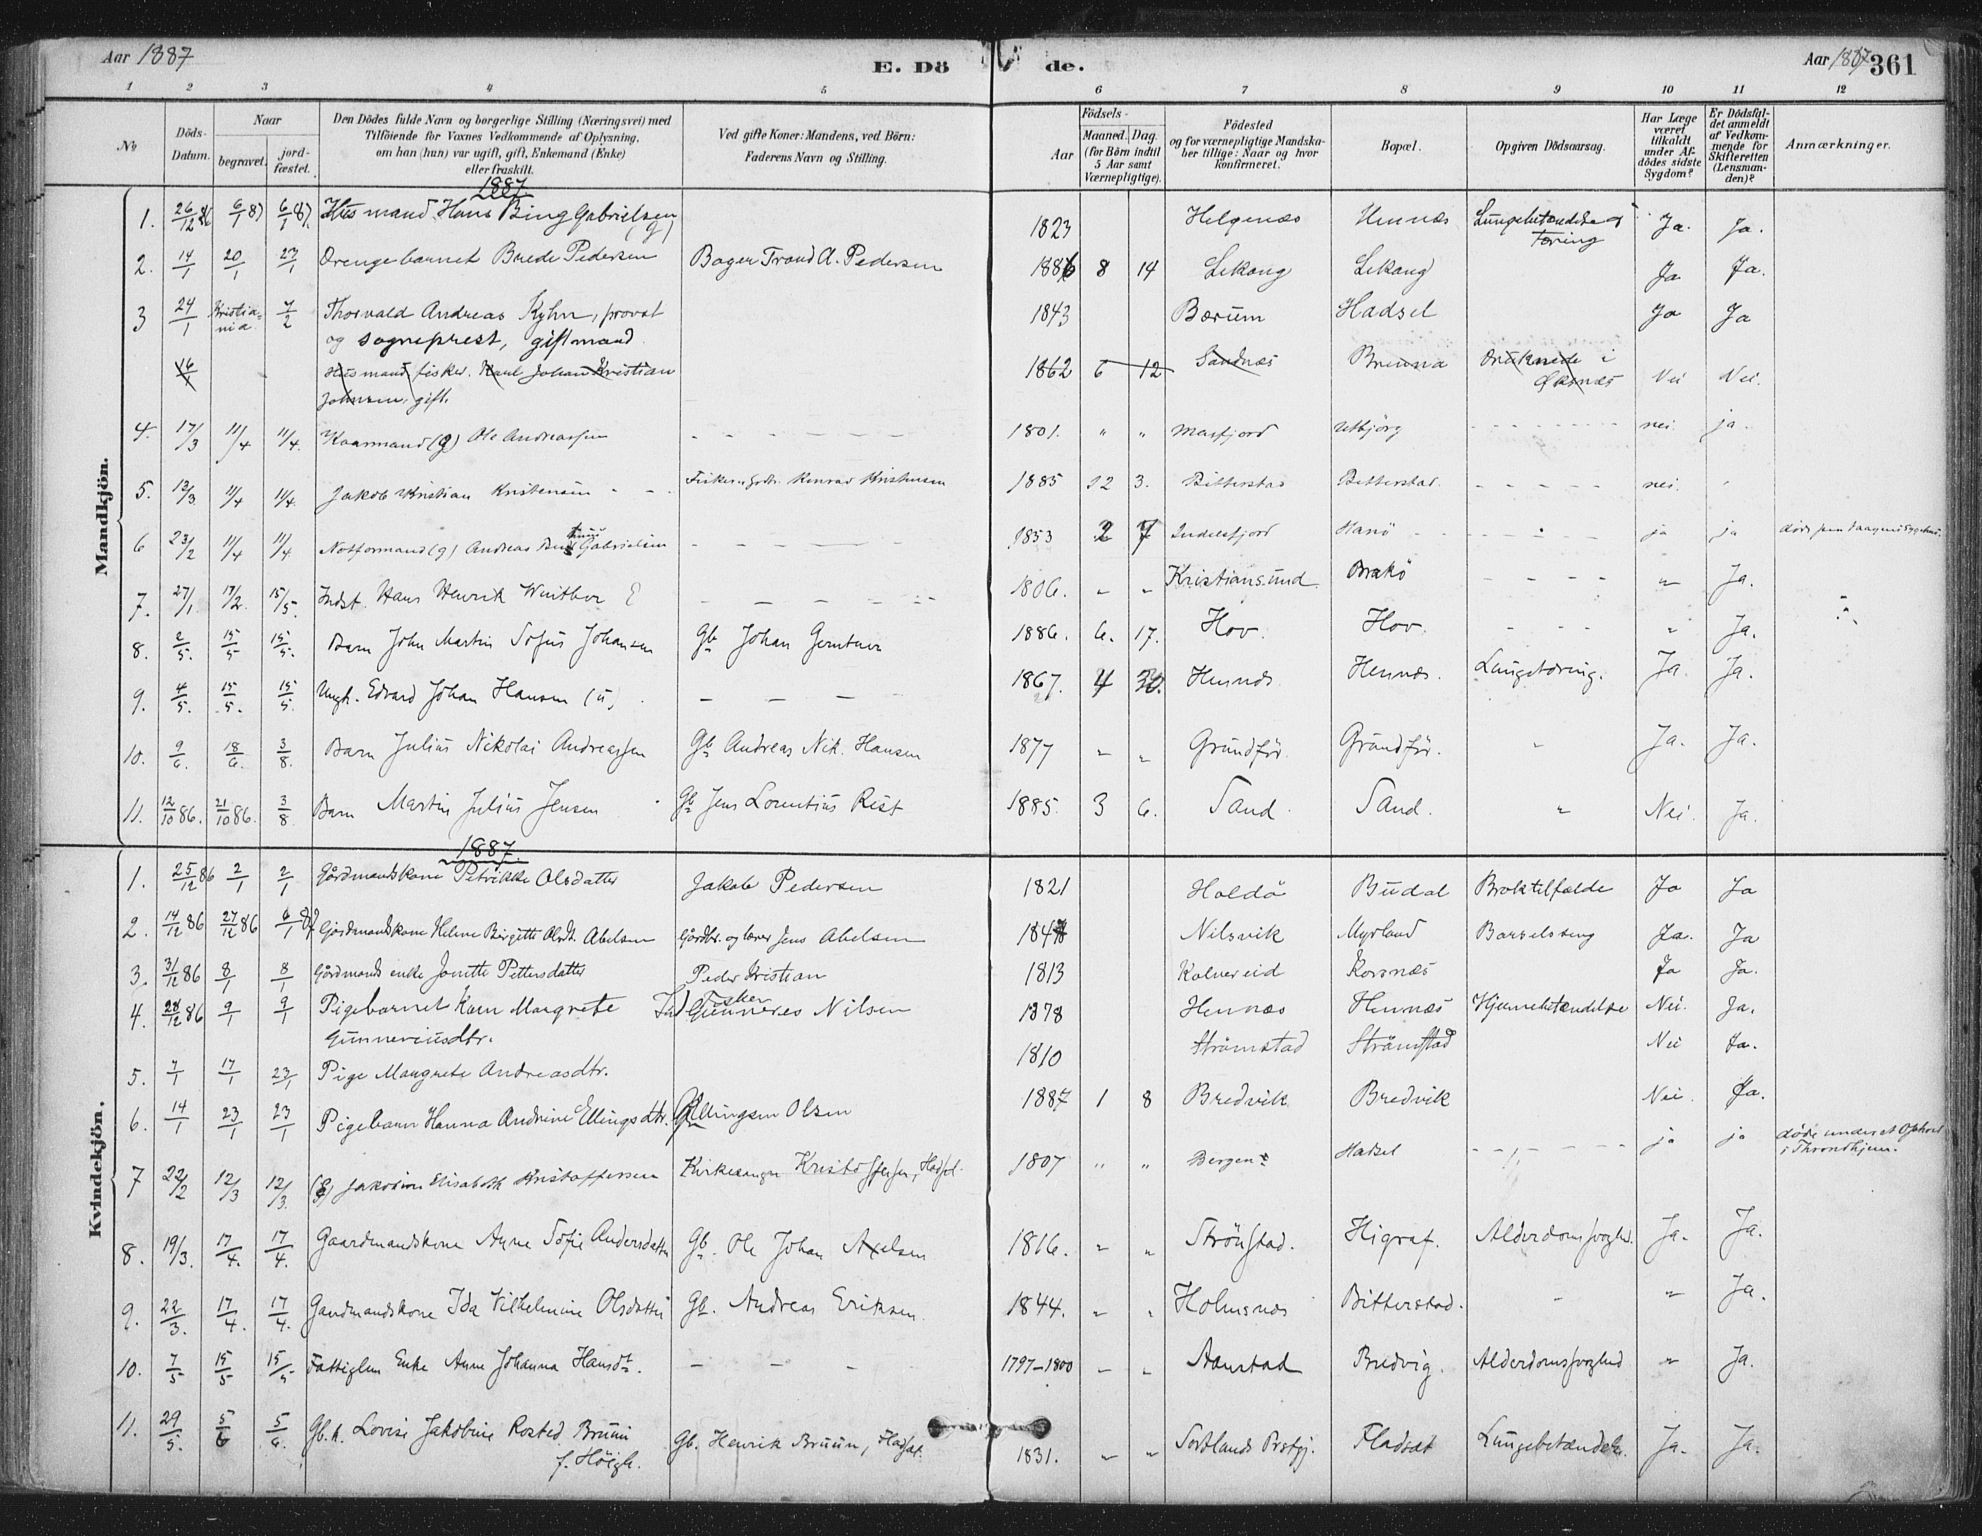 Aar 1887
E. Dö
de.
Aar 1887
361
1 2 3 4 5 6 7 8 9 10 11 12
№
Döds-Datum.
Naar
begravet.
jord-fæstet.
Den Dödes fulde Navn og borgerlige Stilling (Næringsvei) med
Tilföiende for Voxnes Vedkommende af Oplysning,
om han (hun) var ugift, gift, Enkemand (Enke)
eller fraskilt.
Ved gifte Koner: Mandens, ved Börn:
Faderens Navn og Stilling.
Födsels-
Aar
Maaned. Dag.
(for Börn indtil
5 Aar samt
Værnepligtige).
Födested
og for værnepligtige Mandska-
ber tillige: Naar og hvor
konfirmeret.
Bopæl.
Opgiven Dödsaarsag.
Har Læge
været
tilkaldt
under Af-
dödes sidste
Sygdom?
Er Dödsfal-
det anmeldt
af Vedkom-
mende for
Skifteretten
(Lensman-
den)?
Anmærkninger.
Mandkjön.
1887.
1. 26/12 86 6/1 87 6/1 87. Husmand Hans Bing Gabrielsen (g) 1823 Helgenæs Hennæs Lungebetændelse og Tæring Ja. Ja.
2. 14/1 20/1 23/1 Drengebarnet Brede Pedersen Bager Trond A. Pedersen 1886 8 14 Lekang Lekang Ja Ja.
3 24/1 Kristiania 7/2 Thorvald Andreas Kyhn, provst
og sogneprest, giftmand 1843 Bærum Hadsel Ja Ja
16/1 Husmand, fisker. Karl Johan Kristian
Johnsen, gift. 1862 6 12 Sandnæs Brenna Druknede i Øksnæs Nei Nei.
4. 17/3 11/4 11/4. Kaarmand (g) Ole Andreassen 1801. " " Masfjord Utbjörg nei. ja.
5. 12/3 11/4 11/4. Jakob Kristian Kristensen Konrad Kristensen 1885 12 3. Bitterstad Bitterstad. nei.
6 23/2 11/4 11/4 Notformand (g) Andreas Gabrielsen 1853 2 7 Indresfjord Hanö ja ja
7. 27/1. 17/2. 15/5. Indst. Hans Henrik Winther E 1806. " " Kristiansund Brakö " Ja.
8. 2/5. 15/5 15/5. Barn John Martin Sofus Johansen Gb. Johan Gerntner 1886. 6. 17. Hov. Hov. " Ja.
9. 4/5. 15/5. 15/5. Ungk. Edvard Johan Hansen (u) 1867. 4 30. Hennæs Hennæs. Lungetæring. Ja. Ja.
10. 9/6. 18/6. 3/8. Barn Julius Nikolai Andreassen Gb. Andreas Nik. Hansen 1877 " " Grundför Grundför. " Ja. Ja.
11. 12/10 86. 21/10 86. 3/8 Barn Martin Julius Jensen Gb. Jens Lorentius Rist 1885. 3 6. Sand. Sand. " Nei. Ja.
Kvindekjön.
1887.
1. 25/12 86 2/1 2/1 Gårdmandskone Petrikke Olsdatter Jakob Pedersen 1821 Haldö Budal Broktilfælde Ja Ja
2. 14/12 86 27/12 86 6/1 87 Gårdmandskone Helene Birgitte Olsdt. Abelsen Gårdbr. og lærer Jens Abelsen 1847 Nilsvik Myrland Barselseng Ja. Ja
3. 31/12 86 8/1 8/1 Gårdmands enke Jonette Pettersdatter Peder Kristian 1813 Kalvereid Korsnæs Ja Ja.
4. 28/12 86 9/1 9/1 Pigebarnet Karn Margrete
Gunneriusdtr. Fisker Gunnerius Nilsen 1878 Hennæs Hennæs Hjernebetændelse Nei. Ja.
5. 7/1 17/1 23/1 Pige Margrete Andreasdtr. 1810 Strömstad Strömstad Nei Ja.
6. 14/1 23/1 23/1 Pigebarn Hanna Andrine Ellingsdtr. Ellingsen Olsen 1887 1 8 Bredvik Bredvik Nei. Ja.
7 22/2 12/3 12/3. Jakobine Elisabeth Kristoffersen Kirkesanger Kristoffersen, Hadsel. 1807 " " Bergen Hadsel ja ja döde under et Ophold
i Throndhjem.
8. 19/3. 17/4. 17/4. Gaardmandskone Anne Sofie Andersdatter Gb. Ole Johan Axelsen 1816. " " Strömstad. Higraf. Alderdomssvaghed. Ja. Ja.
9. 22/3. 17/4. 17/4. Gaardmandskone Ida Vilhelmine Olsdatter Gb. Andreas Eriksen. 1844. " " Holmsnæs Bitterstad. " " Ja.
10. 7/5 15/5 15/5 Fattiglem Enke Anne Johanna Hansdt. 1797-1800 " " Aanstad Bredvig. Alderdomssvaghed " Ja.
11. 29/5. 5/6 5/6. Gb.k. Lovise Jakobine Rosted Bruun
f. Höigh. Gb. Henrik Bruun, Fladsæt. 1831. " " Sortlands Prstgj. Fladsæt Lungebetændelse. Ja. Ja.